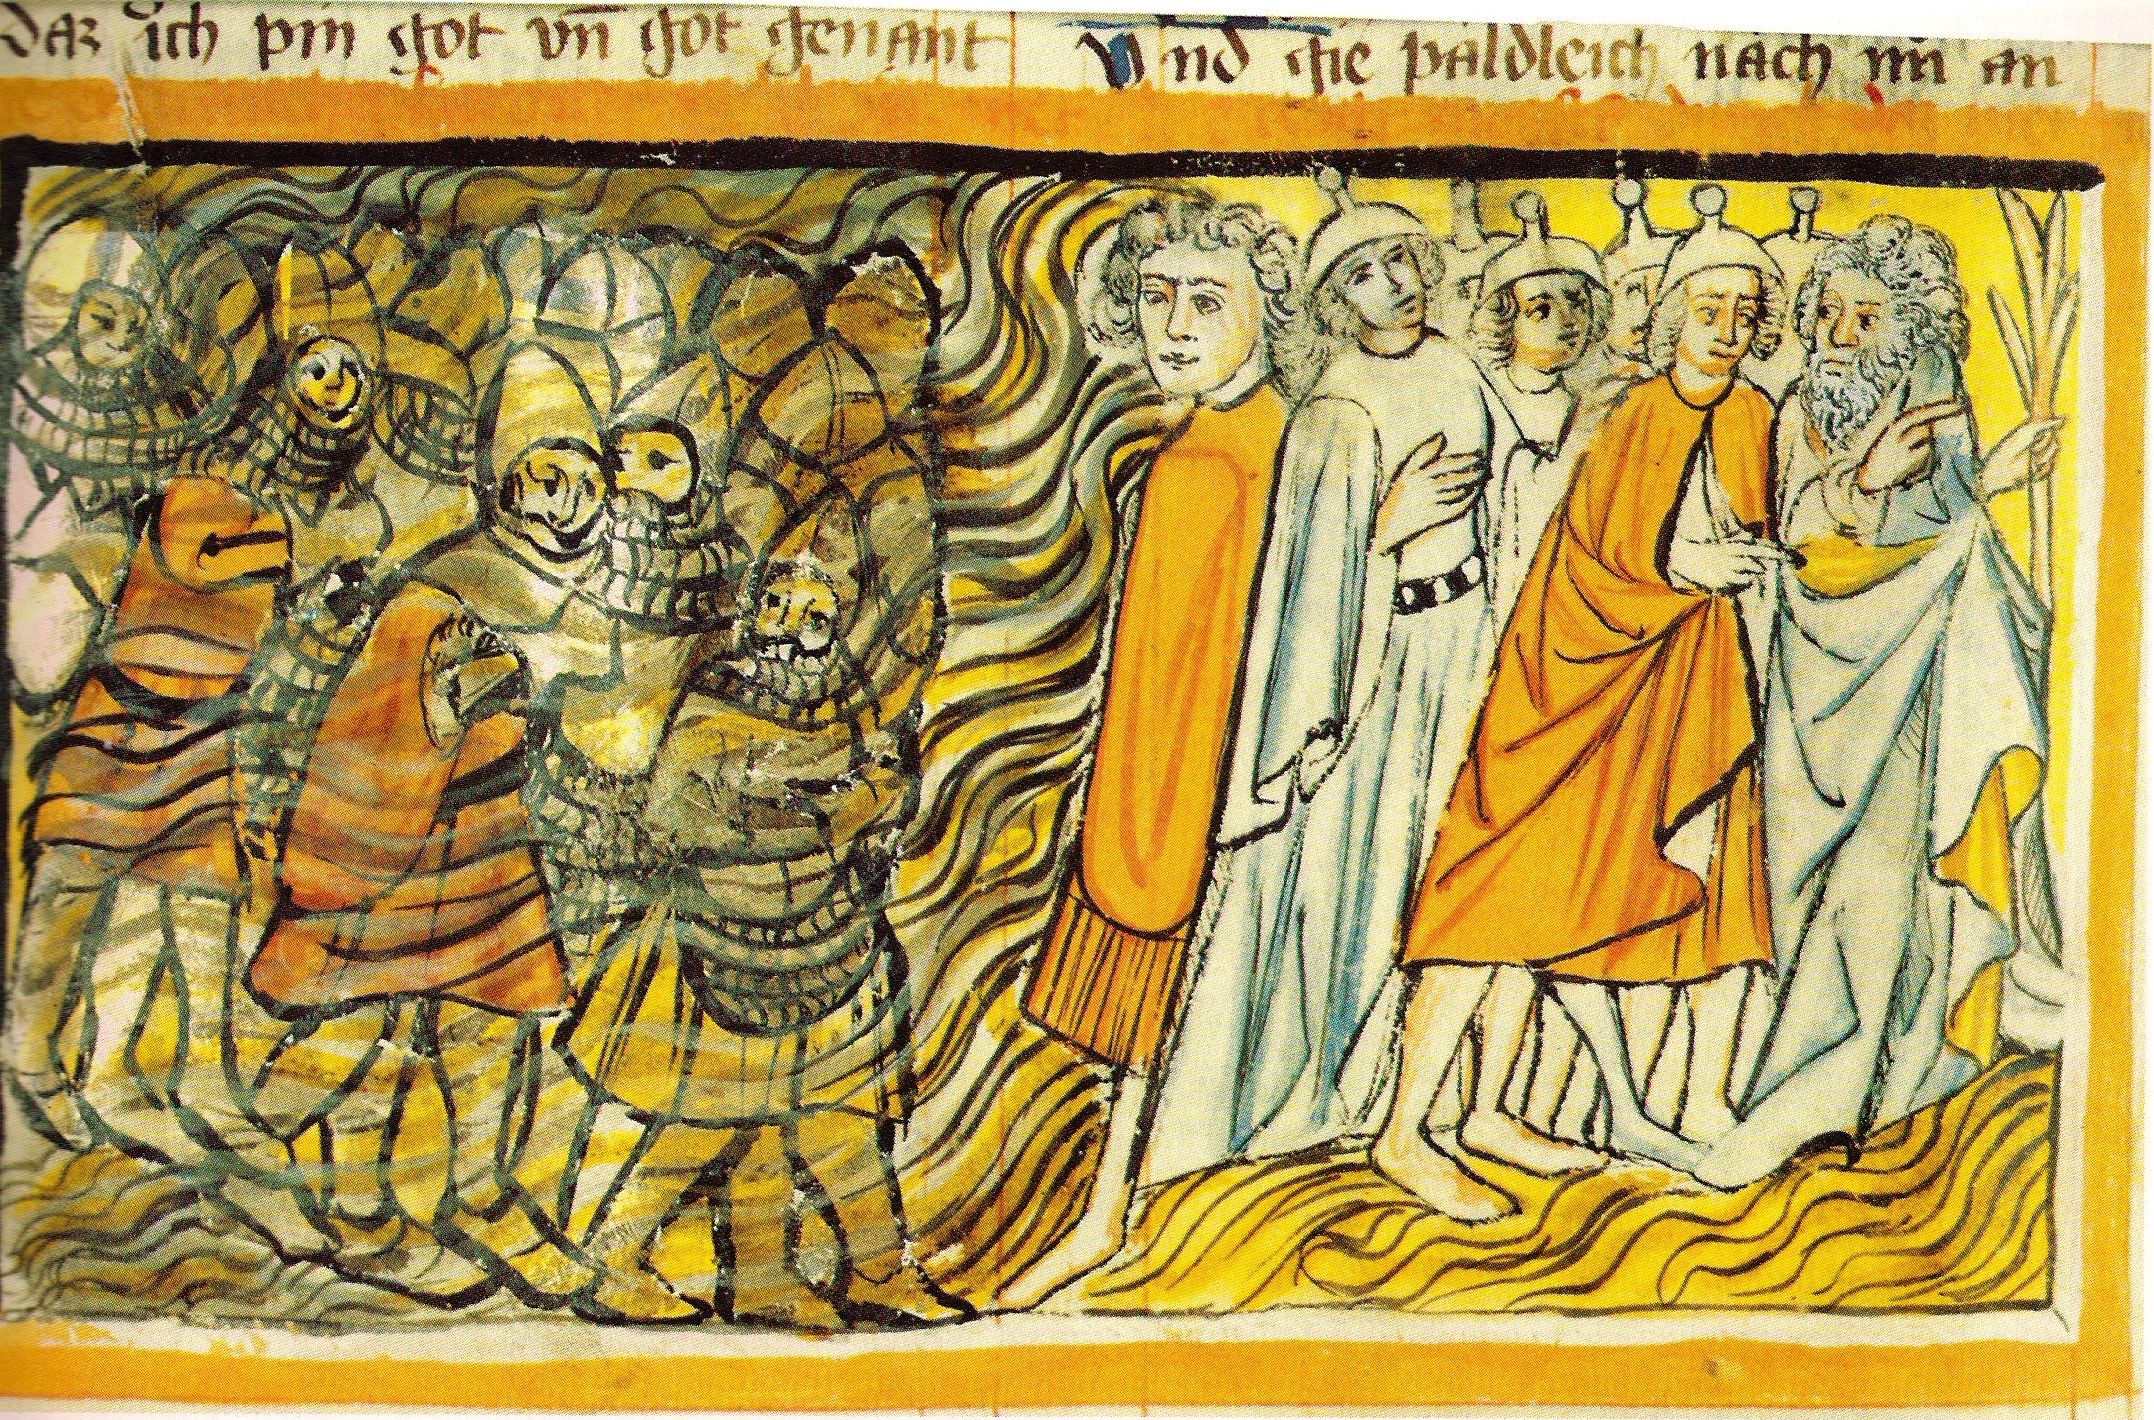 daz ich pin got vn̄ got genant
Vnd gie paldleich nach im an